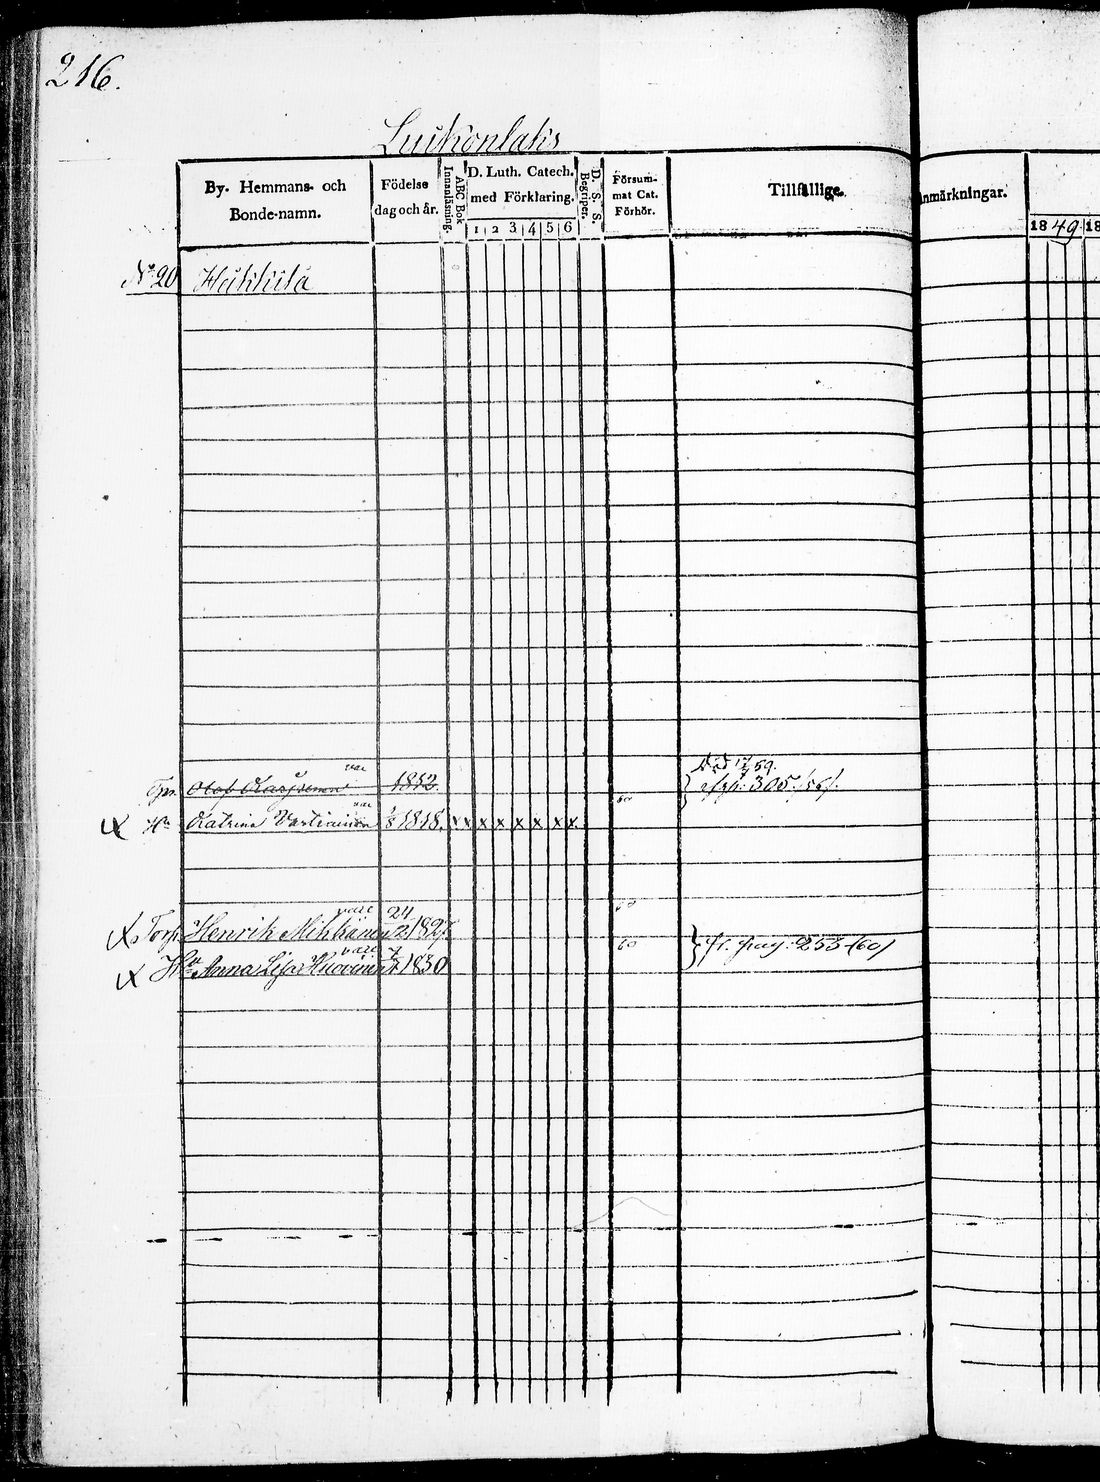 216.
Luikonlaks
By. Hemmans- och Bonde-namn.
Födelse dag och år.
ABC Bok Innanläsning.
D. Luth. Catech. med Förklaring.
1 2 3 4 5 6
D. S. S. Begriper.
Försum- mat Cat. Förhör.
Tillfällige
nmärkningar.
18 49 18
No 20 Heikkilä
Död 59.
Olof vac 1812 305. /56/.
60
Hu Katrina Vartiainen vac 1818. x x x x x x x x
60
Torp. Henrik Mikkänen vacc 24/2 1827
60 } fr. pag. 253 (60)
Hu Anna Lisa vacc 1830